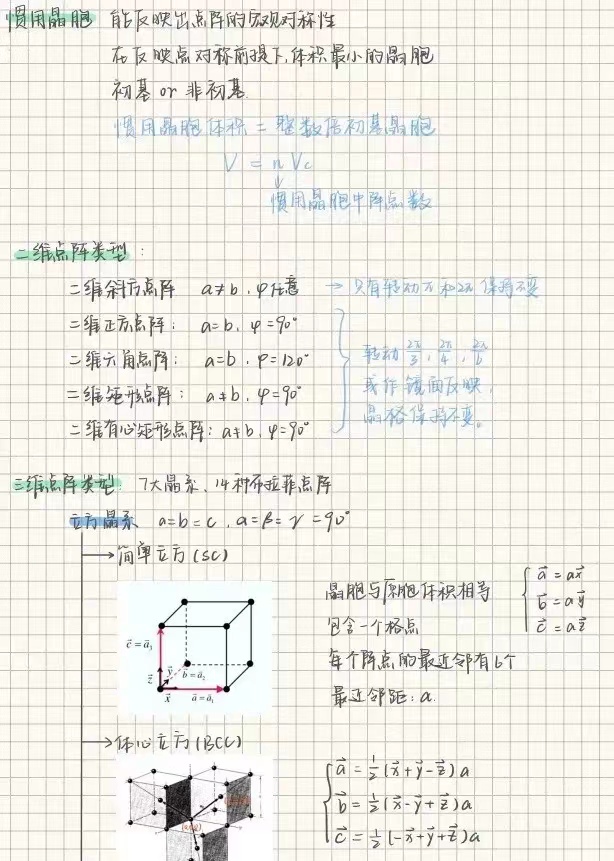 惯用晶胞 能反映出点阵的宏观对称性
在反映点对称前提下,体积最小的晶胞
初基 or 非初基.
惯用晶胞体积 = 整数倍初基晶胞
V = n Vc
惯用晶胞中阵点数
二维点阵类型:
二维斜方点阵 a≠b, φ任意 → 只有转动π和2π保持不变
二维正方点阵: a=b, φ=90°
二维六角点阵: a=b, φ=120°
二维矩形点阵: a≠b, φ=90°
二维有心矩形点阵: a≠b, φ=90°
转动 2π/3, 2π/4, 2π/6
或作镜面反映,
晶格保持不变。
三维点阵类型: 7大晶系、14种布拉菲点阵
立方晶系 a=b=c, α=β=γ=90°
→ 简单立方(SC)
c⃗=a⃗₃
z⃗
y⃗
b⃗=a⃗₂
x⃗
a⃗=a⃗₁
晶胞与原胞体积相等
包含一个格点
每个阵点的最近邻有6个
最近邻距: a.
a⃗ = ax⃗
b⃗ = ay⃗
c⃗ = az⃗
→ 体心立方(BCC)
a⃗ = 1/2 (x⃗+y⃗-z⃗)a
b⃗ = 1/2 (x⃗-y⃗+z⃗)a
c⃗ = 1/2 (-x⃗+y⃗+z⃗)a